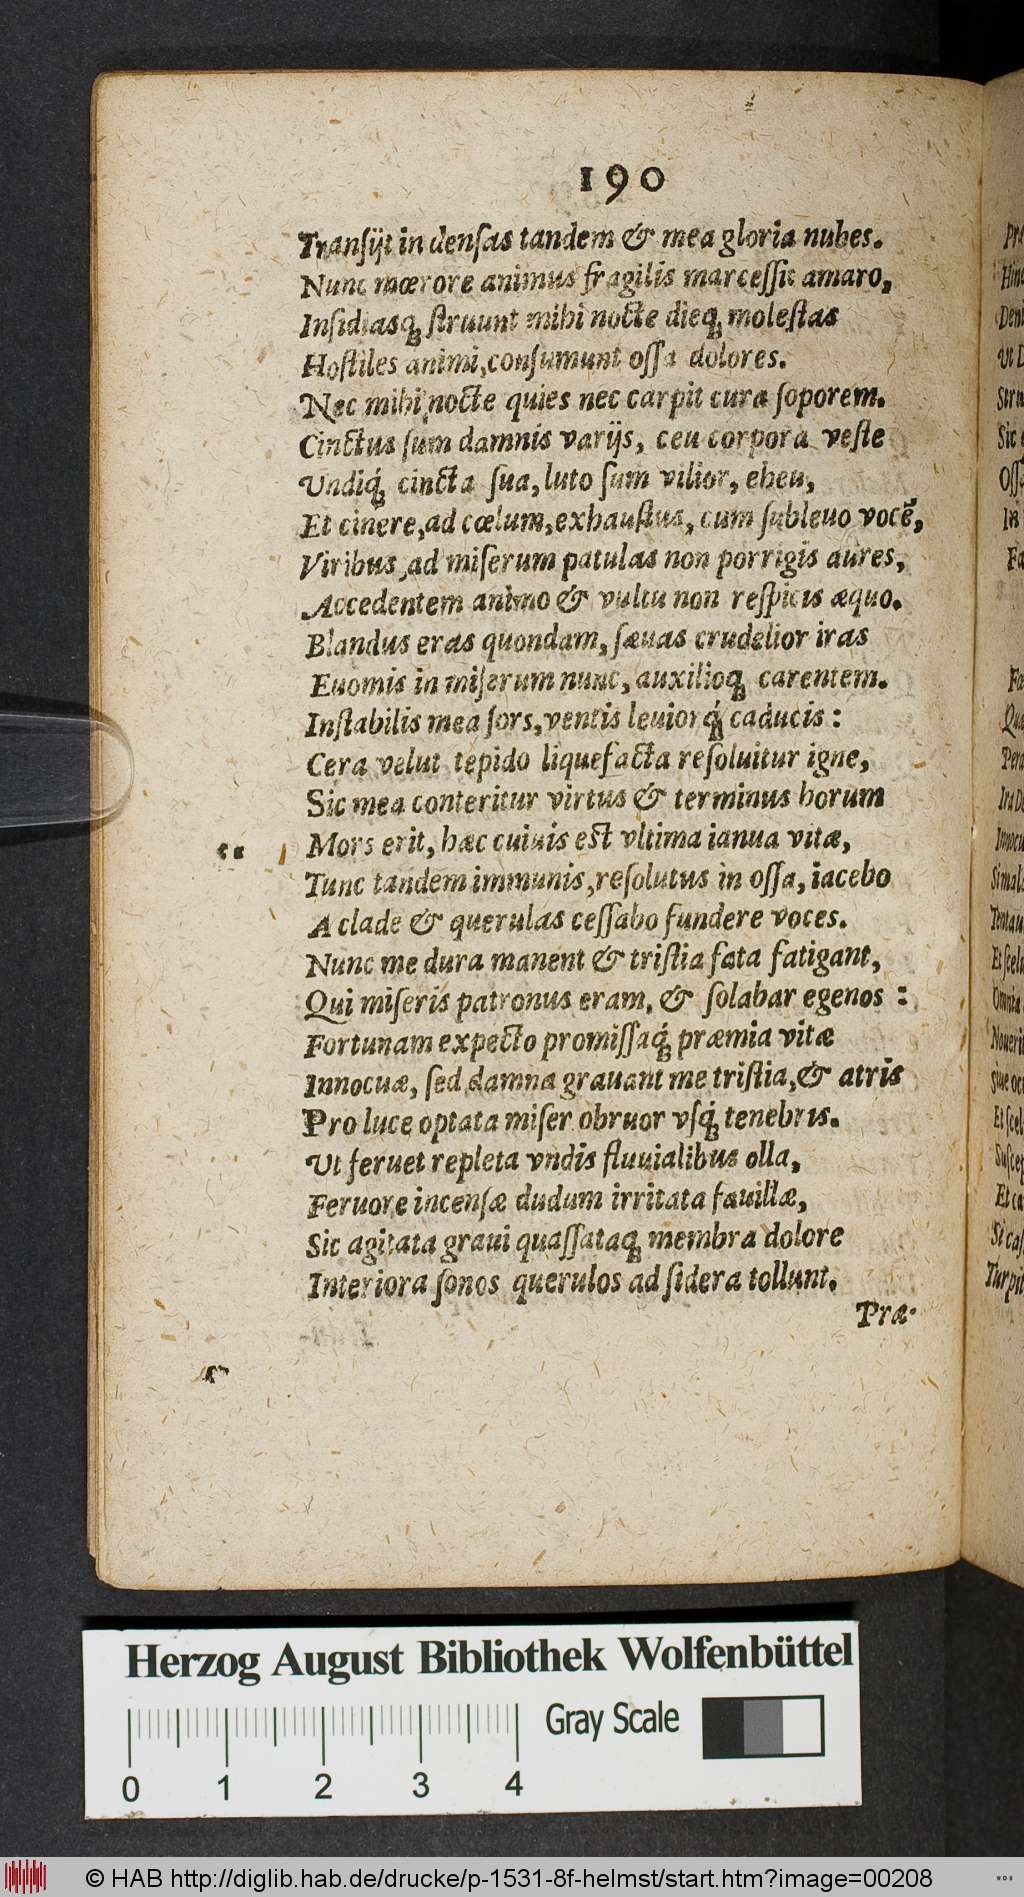 190
Tranſijt in denſas tandem & mea gloria nubes.
Nunc mœrore animus fragilis marceſſit amaro,
Inſidiasꝗ ſtruunt mihi nocte dieꝗ moleſtas
Hoſtiles animi, conſumunt oſſa dolores.
Nec mihi nocte quies nec carpit cura ſoporem.
Cinctus ſum damnis varijs, ceu corpora veſte
Undiꝗ́ cincta ſua, luto ſum vilior, eheu,
Et cinere, ad cœlum, exhauſtus, cum ſubleuo vocẽ,
Viribus, ad miſerum patulas non porrigis aures,
Accedentem animo & vultu non reſpicis æquo.
Blandus eras quondam, ſæuas crudelior iras
Euomis in miſerum nunc, auxilioꝗ carentem.
Inſtabilis mea ſors, ventis leuiorꝗ́ caducis:
Cera velut tepido liquefacta reſoluitur igne,
Sic mea conteritur virtus & terminus horum
Mors erit, hæc cuiuis eſt vltima ianua vitæ,
Tunc tandem immunis, reſolutus in oſſa, iacebo
A clade & querulas ceſſabo fundere voces.
Nunc me dura manent & triſtia fata fatigant,
Qui miſeris patronus eram, & ſolabar egenos:
Fortunam expecto promiſſaꝗ́ præmia vitæ
Innocuæ, ſed damna grauant me triſtia, & atris
Pro luce optata miſer obruor vſꝗ́ tenebris.
Ut feruet repleta vndis fluuialibus olla,
Feruore incenſæ dudum irritata fauillæ,
Sic agitata graui quaſſataꝗ membra dolore
Interiora ſonos querulos ad ſidera tollunt.
Præ-
Herzog August Bibliothek Wolfenbüttel
Gray Scale
0 1 2 3 4
© HAB http://diglib.hab.de/drucke/p-1531-8f-helmst/start.htm?image=00208